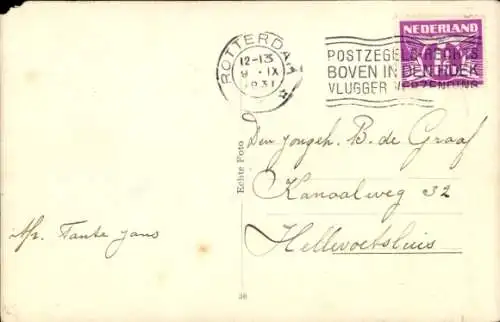 NEDERLAND
ROTTERDAM
12-13
9 · IX
1931
POSTZEGELS RECHTS
BOVEN IN DEN HOEK
VLUGGER VERZENDING
Den jongeh. B. de Graaf
Kanaalweg 32
Hellevoetsluis
Afz. Tante Jans
Echte Foto
36